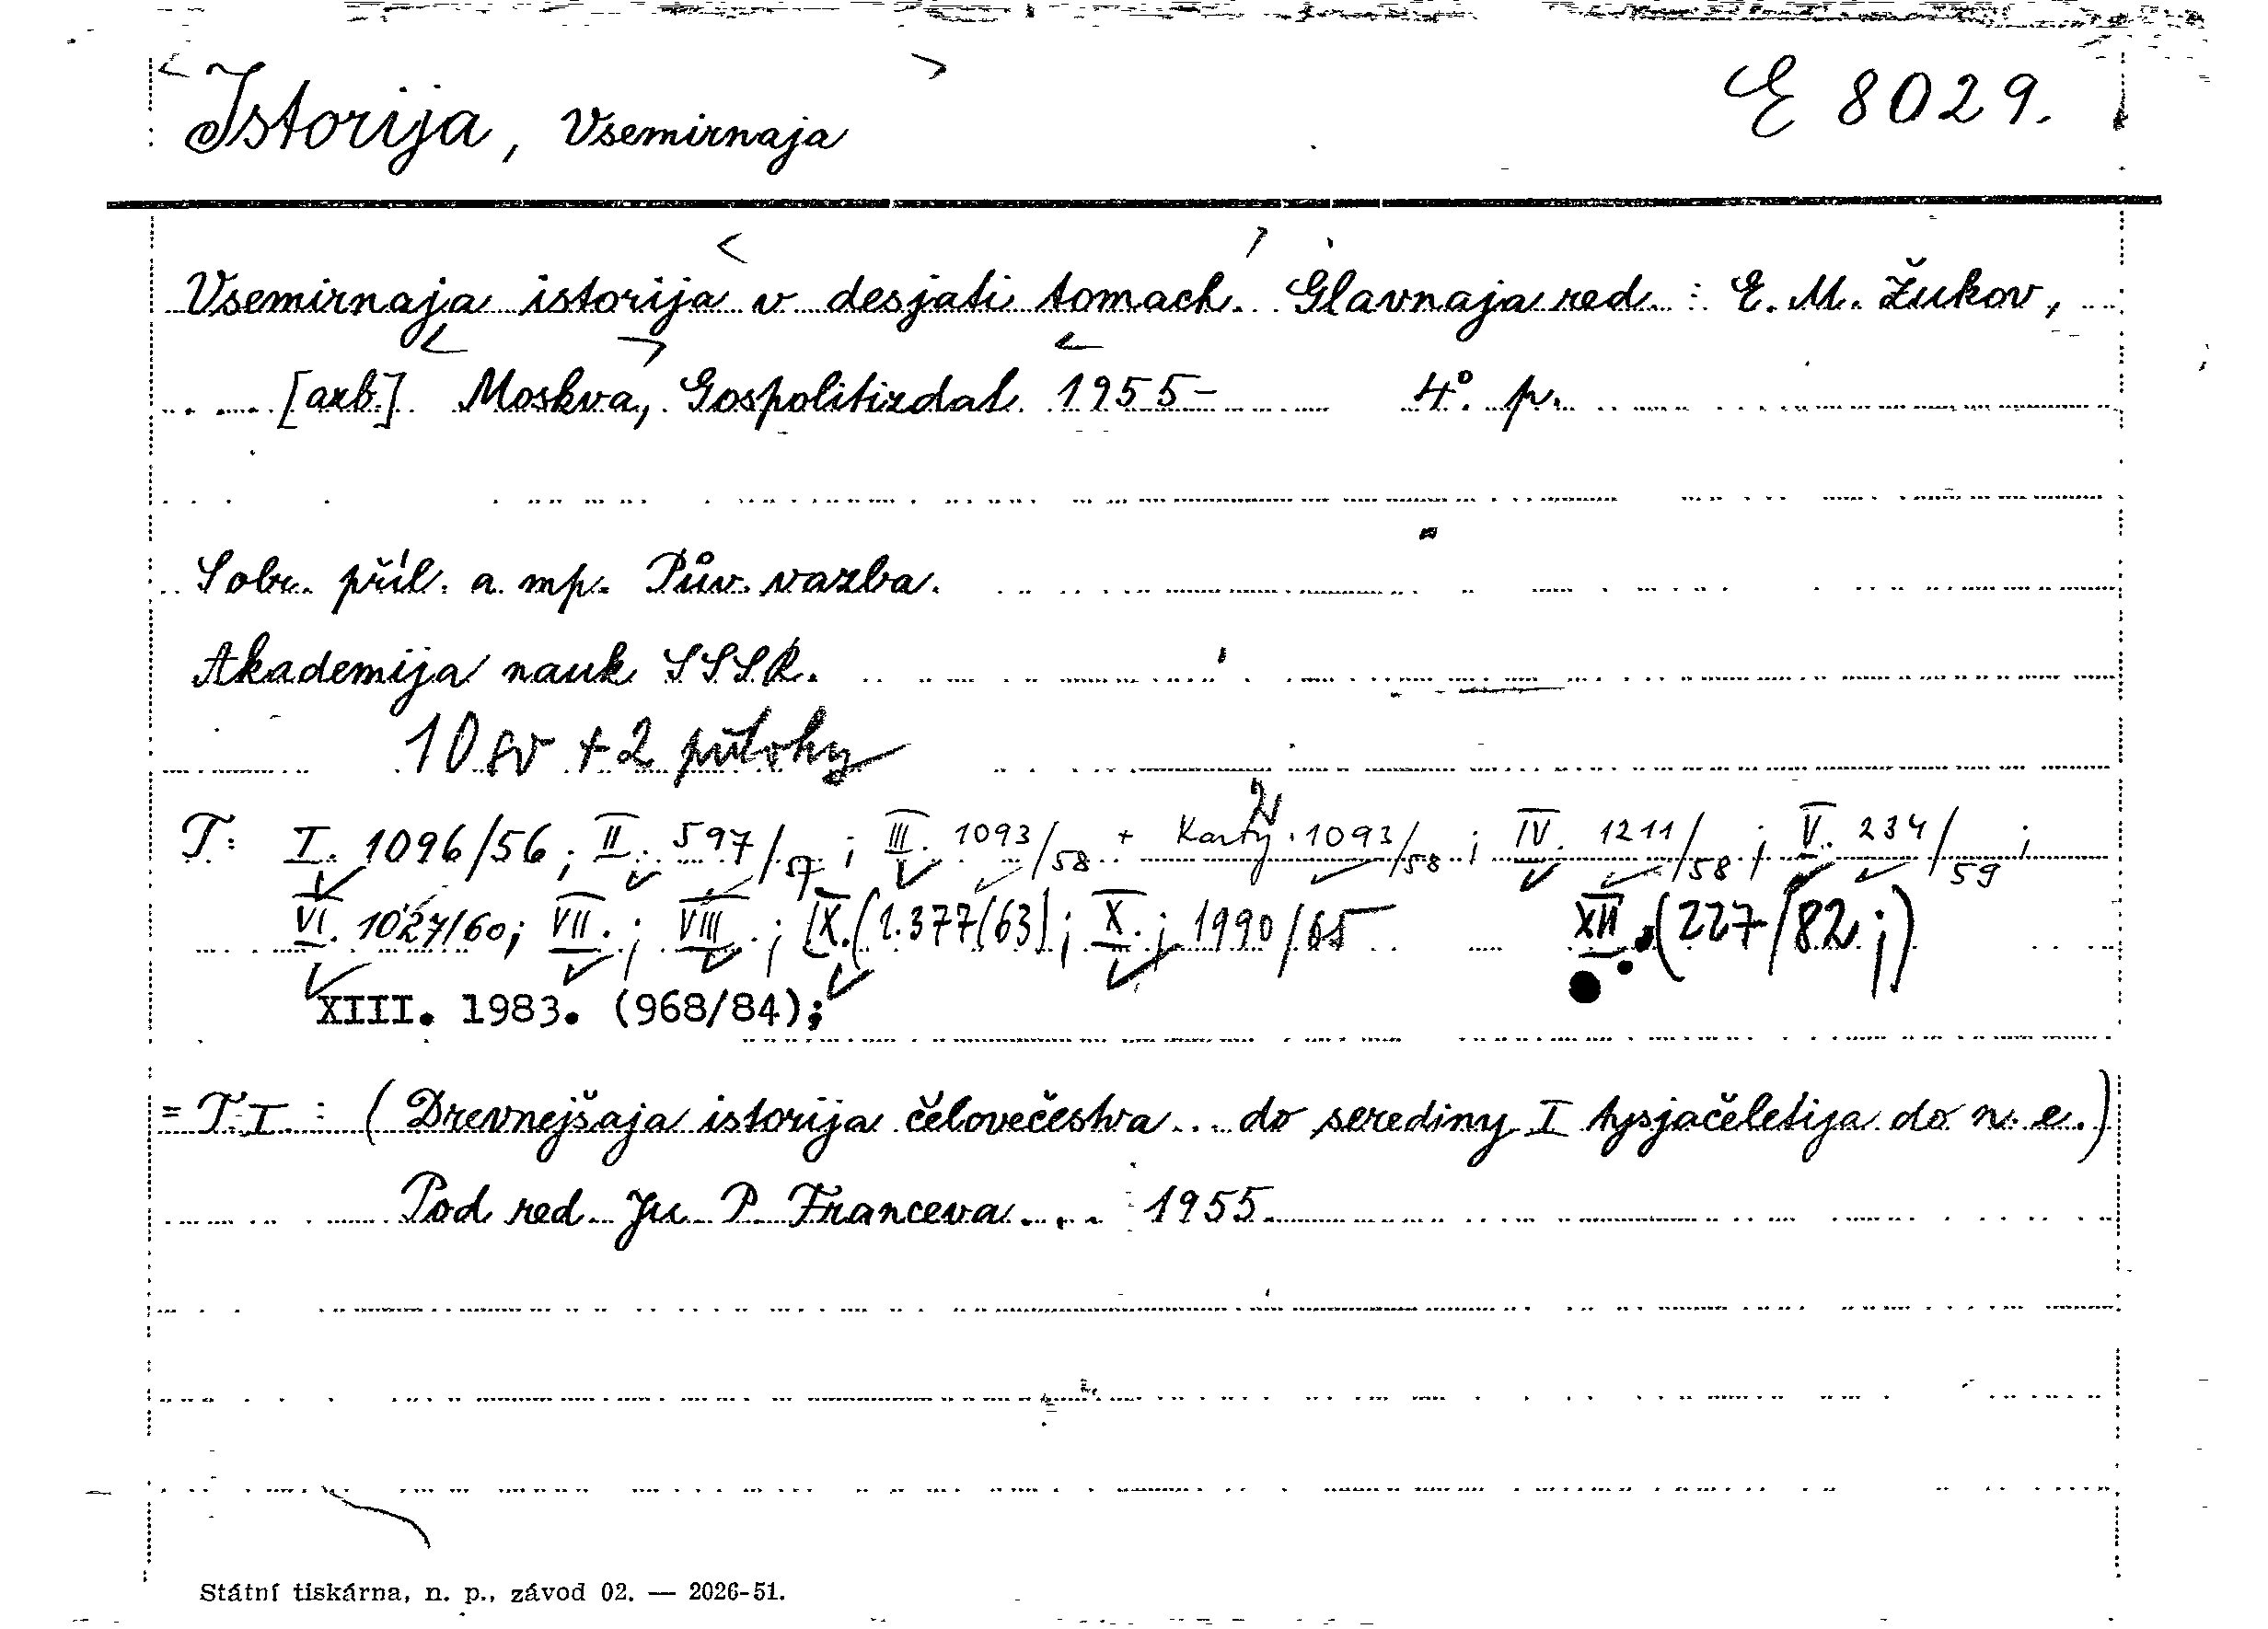 Istorija, Vsemirnaja E 8029.
Vsemirnaja istorija v desjati tomach. Glavnaja red.: E. M. Žukov,
... [azb.] Moskva, Gospolitizdat 1955- 4° p.
Sobr. příl. a mp. Pův. vazba.
Akademija nauk SSSR.
10 sv + 2 přílohy
2
T: I. 1096/56; II. 597/57; III. 1093/58 + Karty. 1093/58; IV. 1211/58; V. 234/59;
VI. 1027/60; VII.; VIII.; IX. (1.377/63); X.; 1990/65 XII. (227/82;)
XIII. 1983. (968/84);
= T. I.: (Drevnejšaja istorija čelovečestva... do serediny I tysjačeletija do n. e.)
Pod red. Ju. P. Franceva... 1955.
Státní tiskárna, n. p., závod 02. — 2026-51.